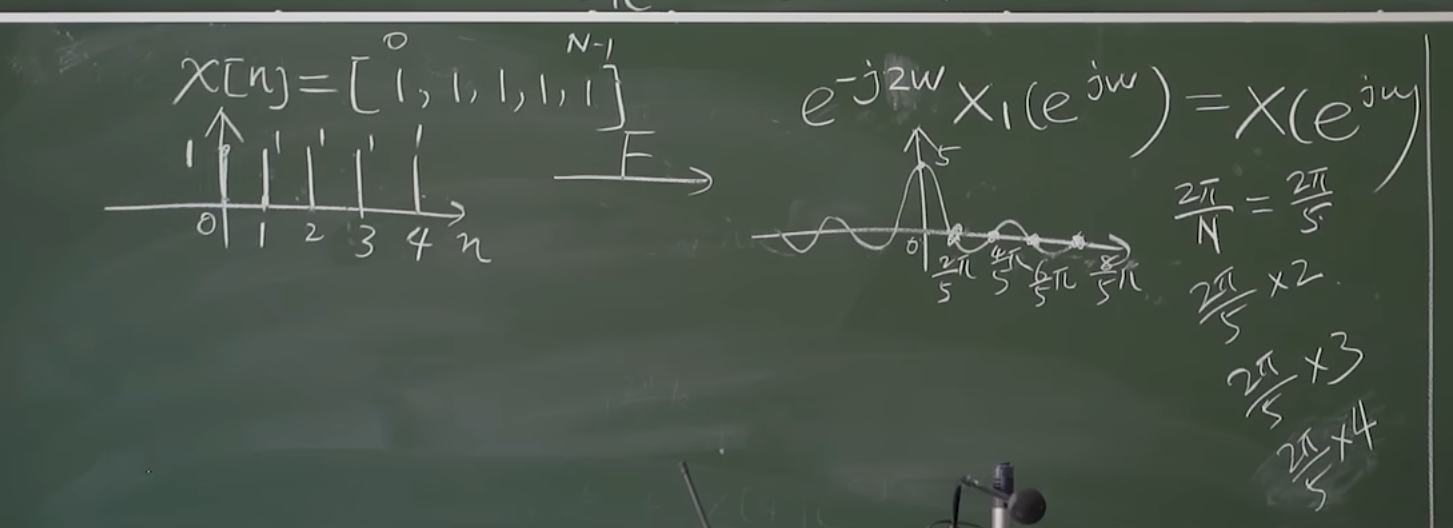 0 N-1
x[n]=[1,1,1,1,1]
1 1 1 1 1
0 1 2 3 4 n
F
e^{-j2w} X_1(e^{jw}) = X(e^{jw})
5
0 2/5π 4/5π 6/5π 8/5π
2π/N = 2π/5
2π/5 ×2
2π/5 ×3
2π/5 ×4